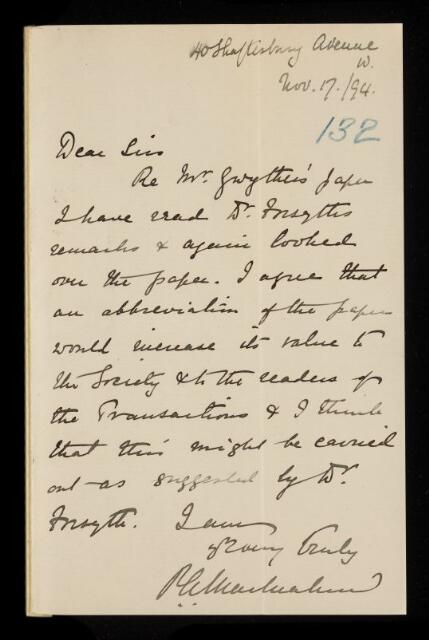 40 Shaftesbury Avenue
W.
Nov. 17. /94.
132
Dear Sirs
Re Mr. Gwyther's paper
I have read Dr. Forsyths
remarks & again looked
over the paper. I agree that
an abbreviation of the paper
would increase its value to
the Society & to the readers of
the Transactions & I think
that this might be carried
out as suggested by Dr.
Forsyth. I am
Yrs very truly
P A MacMahon